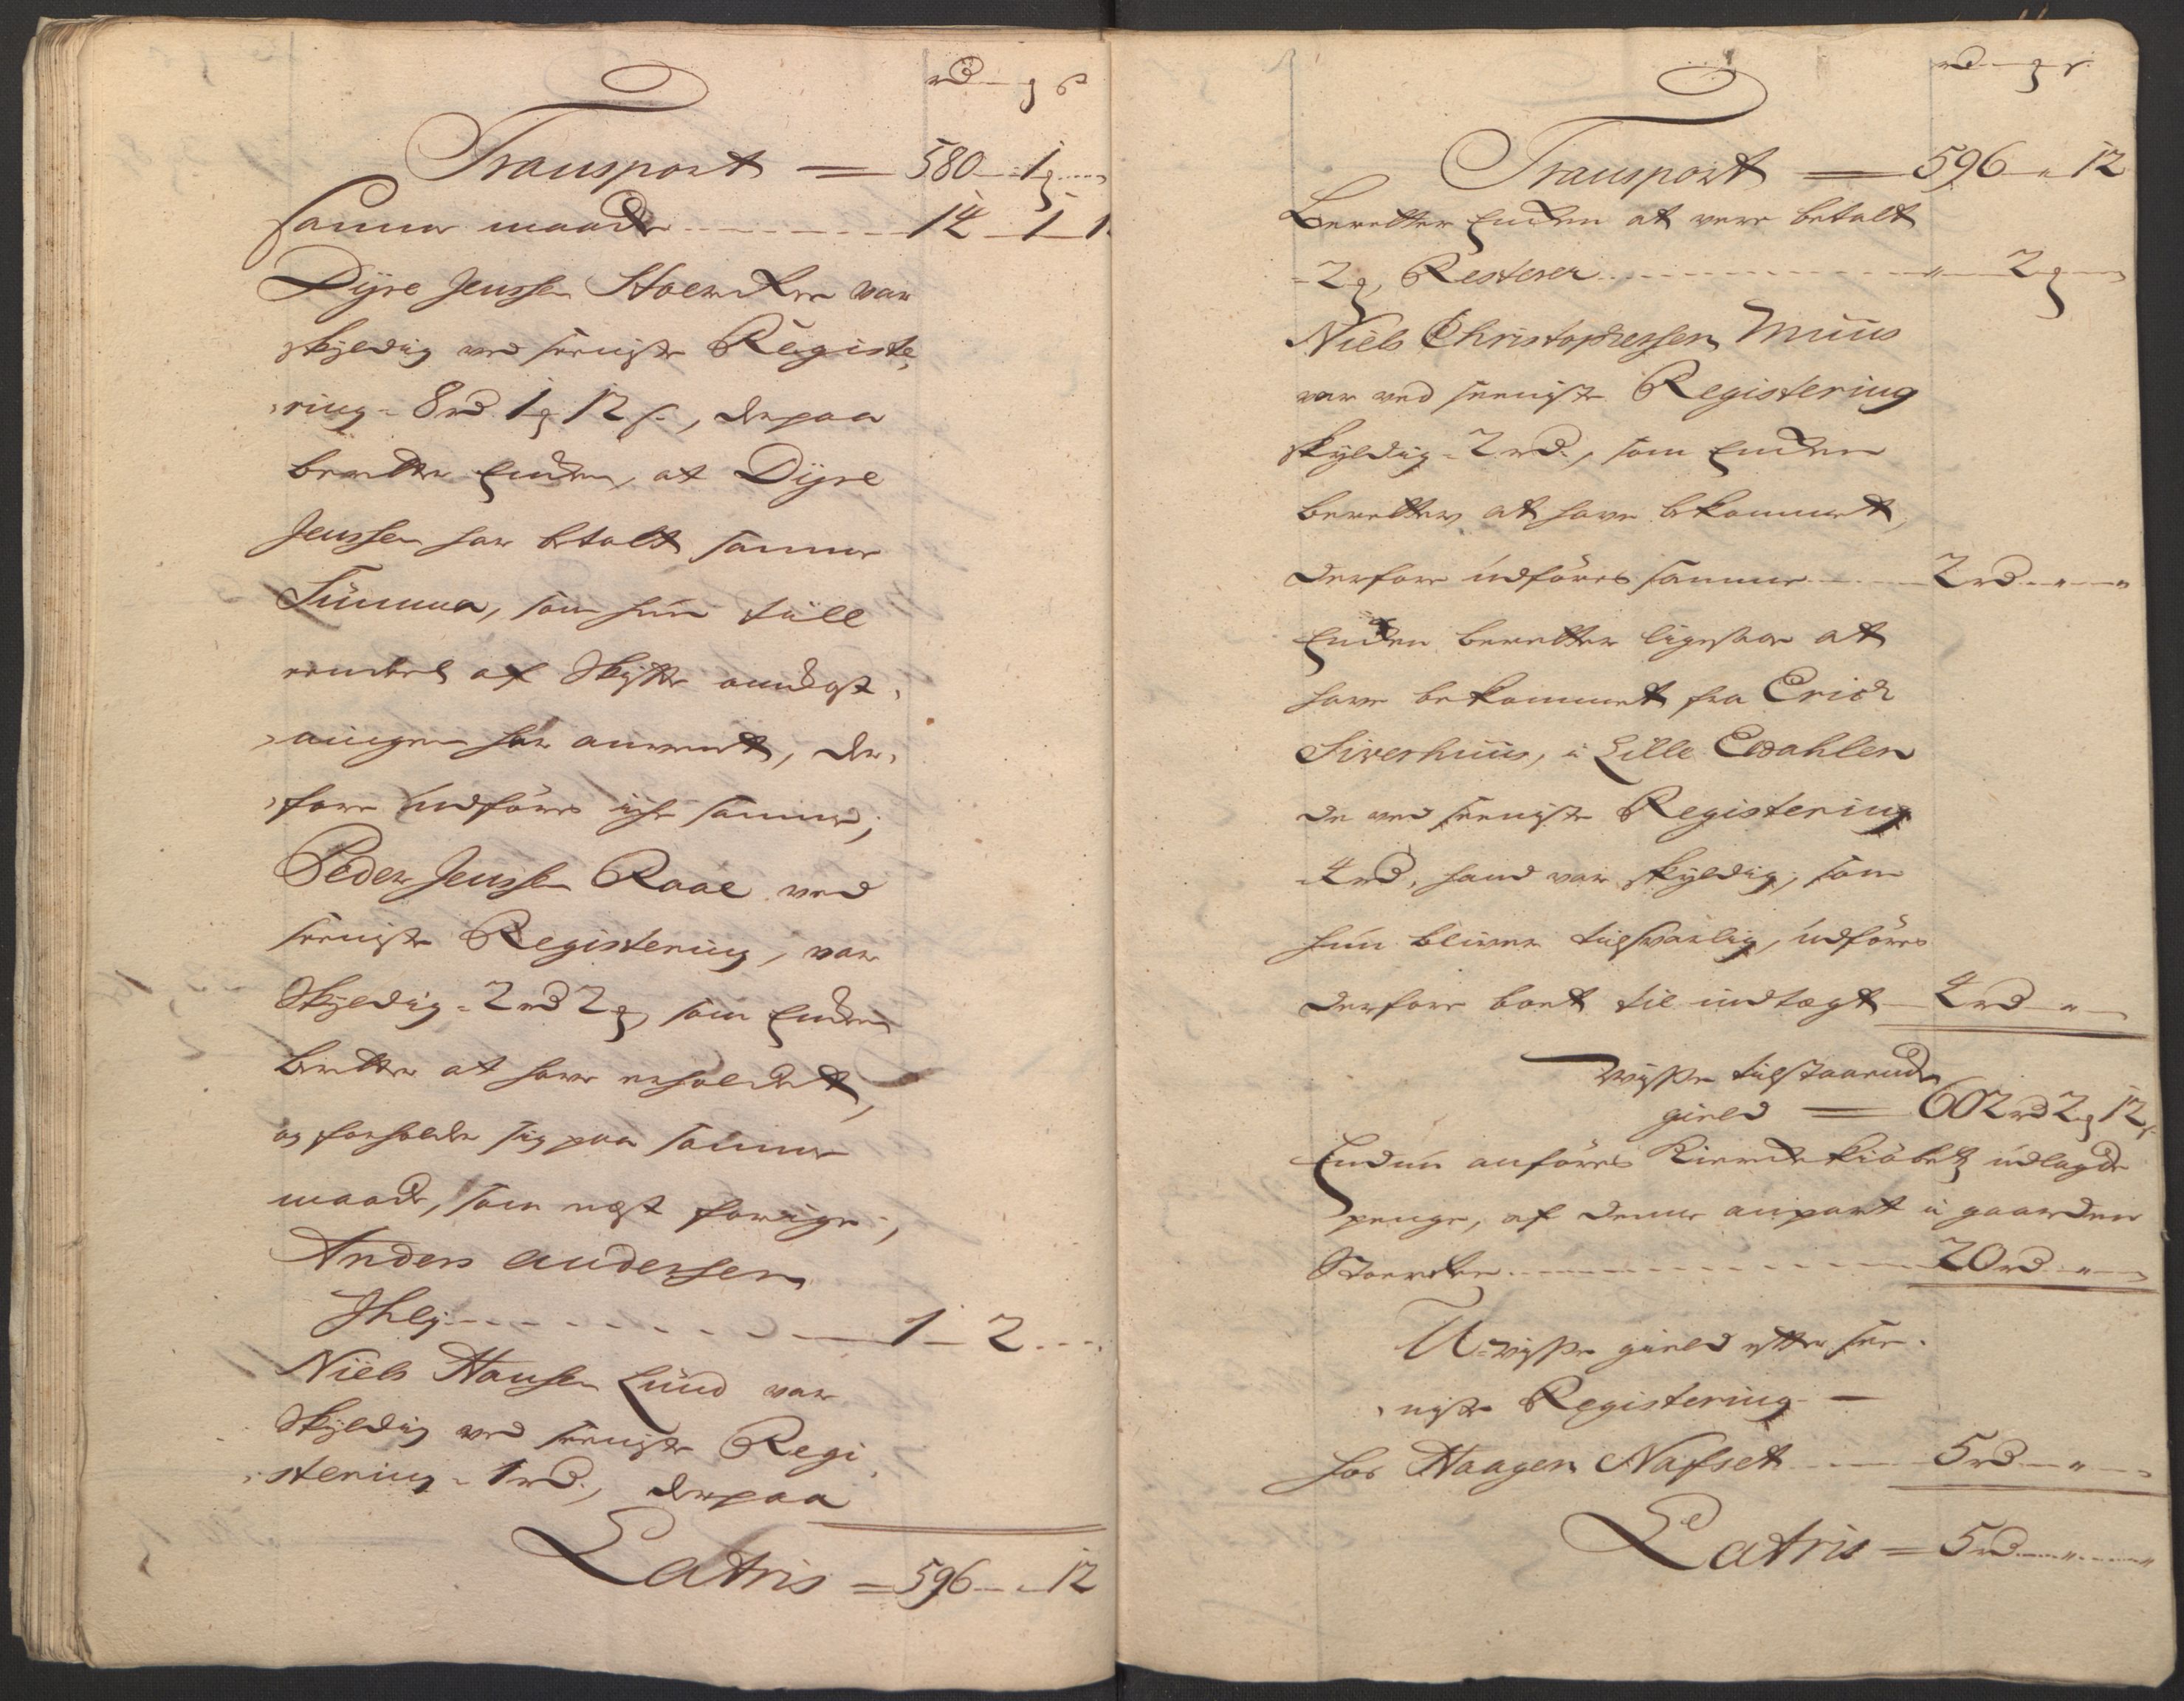 rd q s
Transport = 580 – 1q
samme maade 14 – 1 – 1
Dyre Jenssen Stoercken var
skyldig ved seeniste Registe,
,ring = 8 rd 1q 12 s., derpaa
beretter Encken, at Dyre
Jenssen har betalt samme
Summa, som hun till
af Skifte
har anvendt, der,
,fore udføres icke samme;
Peder Jenssen Raae ved
seeniste Registering, var
skyldig = 2 rd 2q, som Encken
beretter at have erholdet,
og forholder sig paa samme
maade, som nest forrige;
Anders Andersen
Ihley 1 – 2
Niels Hansen Lund var
skyldig ved seeniste Regi,
,stering = 1 rd., derpaa
Latris = 596 – „ – 12
rd q s.
Transport = 596 „ 12
Beretter Encken at vere betalt
= 2q, Resterer „ 2q
Niels Christophersen Muus
var ved seeniste Registering
skyldig = 2 rd., som Encken
beretter at have bekommet,
derfore udføres samme 2 rd „ „
Encken beretter ligesaa at
have bekommet fra Erick
Siverhuus, i Lille Elvdahlen
de ved seeniste Registering
4 rd, hand var skyldig, som
hun bliver tilsvarlig, udføres
derfore boet til indtægt 4 rd „
Wisse tilstaaende
gield = 602 rd 2q 12 s
Endnu anføres Kierckekiøbets udlagde
penge, af denne anpart i gaarden
Stoercken 20 rd „
U-wisse gield efter see,
,niste Registering –
hos Haagen Nafset 5 rd „
Latris = 5 rd „ „